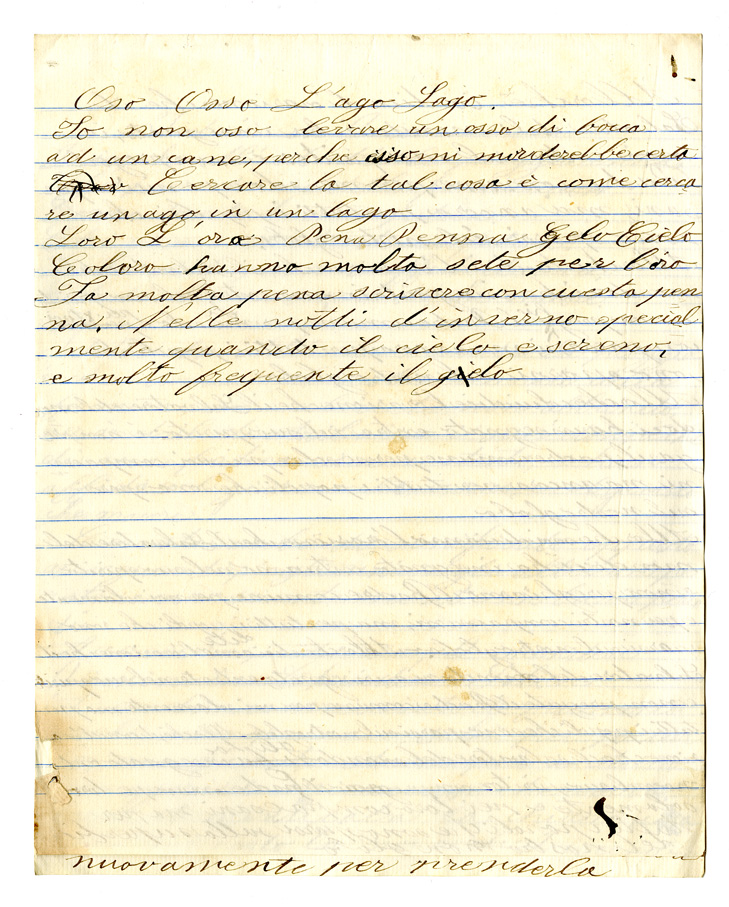 Oso Osso L'ago Lago.
Io non oso levare un osso di bocca
ad un cane, perche mi morderebbe certo
Cercare la tal cosa è come cerca
re un ago in un lago
Loro L'oro Pena Penna Gelo Cielo
Coloro hanno molta sete per l'oro
Fa molta pena scrivere con cuesta pen
na. Nelle notti d'inverno special
mente quando il cielo e sereno,
e molto frequente il gielo
nuovamente per prenderla